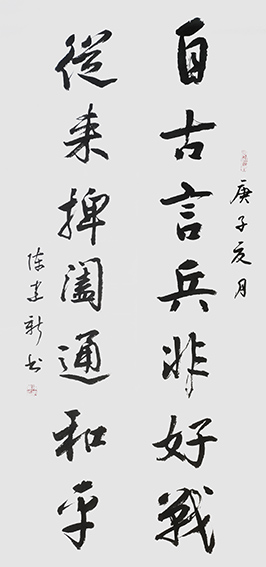 庚子亥月
自古言兵非好戰
從来捭阖通和平
陈建新书